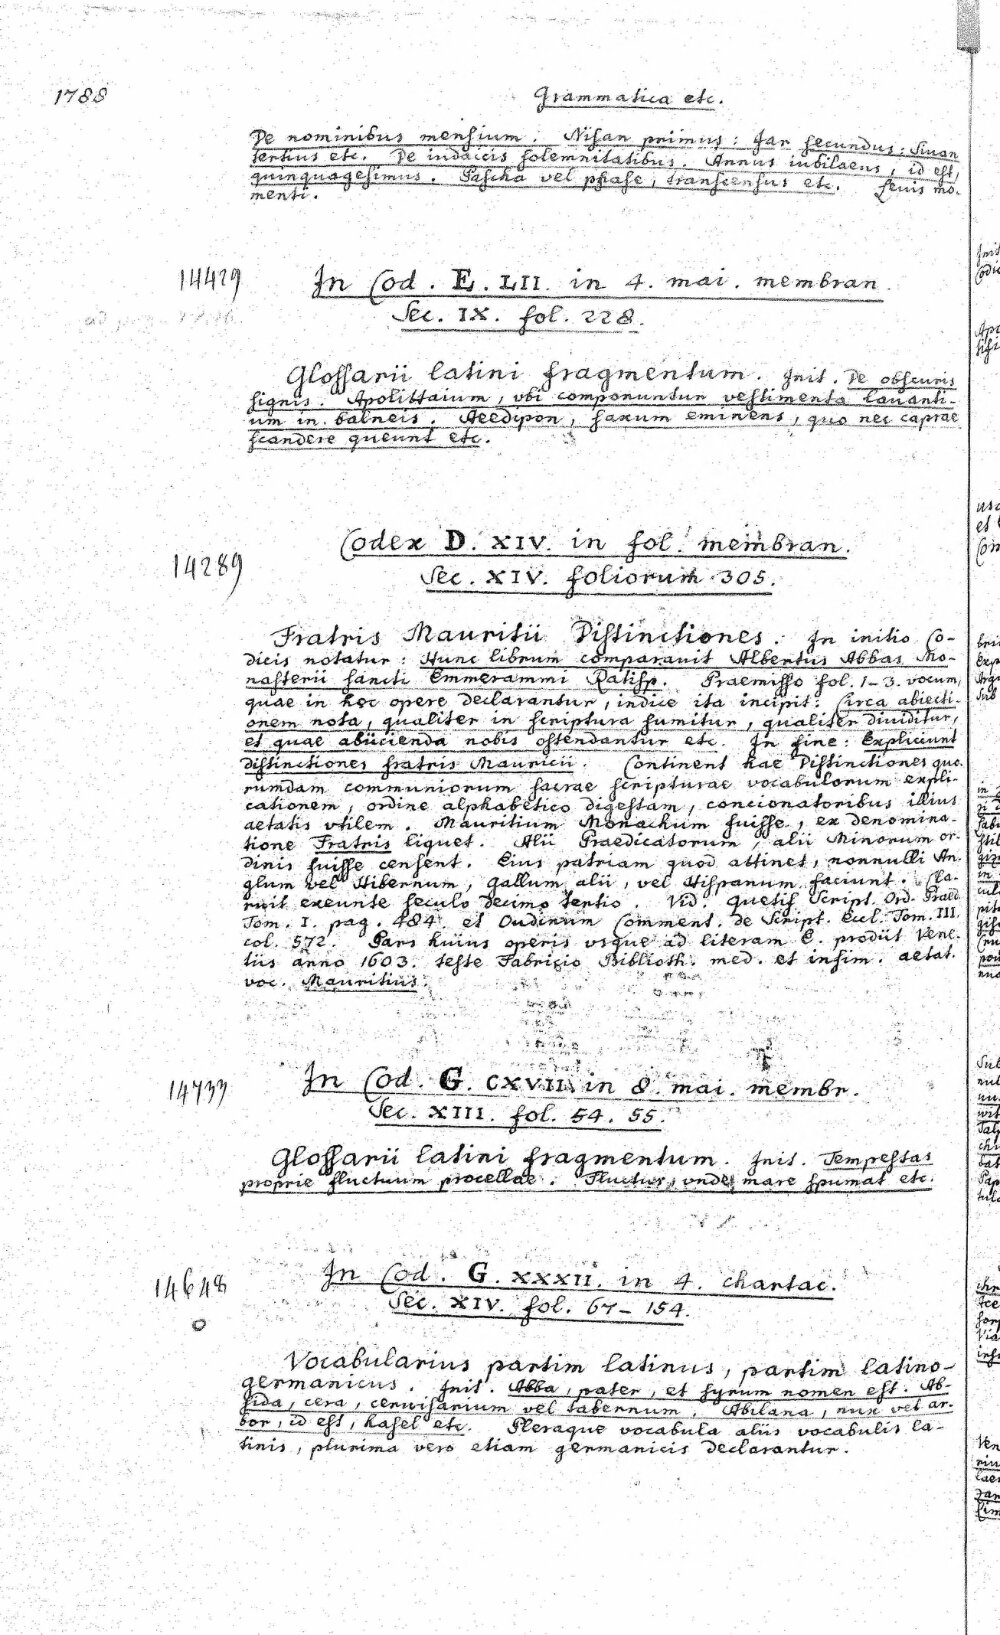 1788
Grammatica etc.
De nominibus mensium. Nisan primus: Jar secundus: Siuan
tertius etc. De iudaicis solemnitatibus. Annus iubilaeus, id est,
quinquagesimus. Pascha vel phase, transcensus etc. Leuis mo-
menti.
14429
In Cod. E. LII. in 4. mai. membran.
Sec. IX. fol. 228.
Glossarii latini fragmentum. Init. De obscuris
signis. Apolittaium, vbi componuntur vestimenta lauanti-
um in balneis. Aeedipon, saxum eminens, quo nec caprae
scandere queunt etc.
14289
Codex D. XIV. in fol. membran.
Sec. XIV. foliorum 305.
Fratris Mauritii Distinctiones. In initio Co-
dicis notatur: Hunc librum comparauit Albertus Abbas Mo-
nasterii sancti Emmerammi Ratisp. Praemisso fol. 1-3. vocum,
quae in hoc opere declarantur, indice ita incipit: Circa abiecti-
onem nota, qualiter in scriptura sumitur, qualiter diuiditur,
et quae abiicienda nobis ostendantur etc. In fine: Expliciunt
distinctiones fratris Mauricii. Continent hae Distinctiones quo-
rumdam communiorum sacrae scripturae vocabulorum expli-
cationem, ordine alphabetico digestam, concionatoribus illius
aetatis vtilem. Mauritium Monachum fuisse, ex denomina-
tione Fratris liquet. Alii Praedicatorum, alii Minorum or-
dinis fuisse censent. Eius patriam quod attinet, nonnulli An-
glum vel Hibernum, Gallum alii, vel Hispanum faciunt. Cla-
ruit exeunte seculo decimo tertio. Vid. Quetif Script. Ord. Praed.
Tom. I. pag. 484 et Oudinum Comment. de Script. Eccl. Tom. III.
col. 572. Pars huius operis vsque ad literam E. prodiit Vene-
tiis anno 1603. teste Fabricio Biblioth. med. et infim. aetat.
voc. Mauritius.
14733
In Cod. G. CXVII. in 8. mai. membr.
Sec. XIII. fol. 54. 55.
Glossarii latini fragmentum. Init. Tempestas
proprie fluctuum procellae. Fluctus, vnde mare spumat etc.
14648
In Cod. G. XXXII. in 4. chartac.
Sec. XIV. fol. 67-154.
Vocabularius partim latinus, partim latino-
germanicus. Init. Abba, pater, et syrum nomen est. Ab-
sida, cera, ceruisarium vel tabernum. Abilana, nux vel ar-
bor, id est, hasel etc. Pleraque vocabula aliis vocabulis la-
tinis, plurima vero etiam germanicis declarantur.